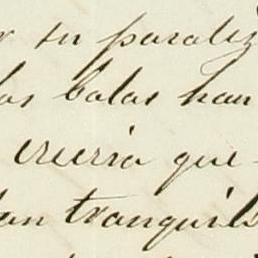 su paraliz
las balas han
creeria que
tan tranquilo